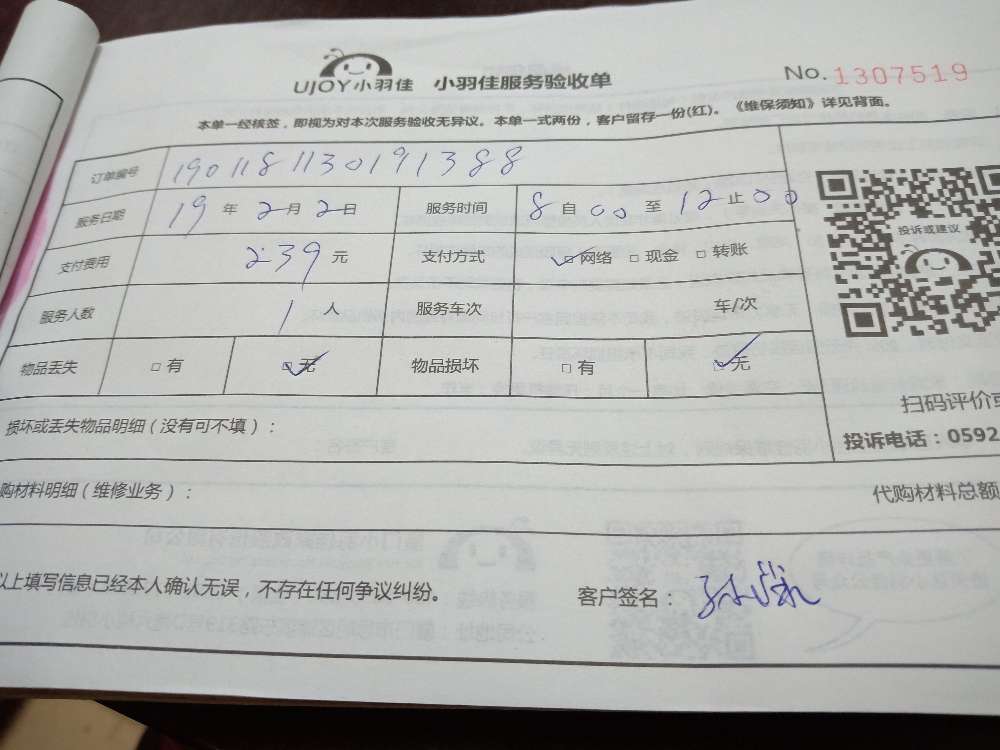 UJOY小羽佳 小羽佳服务验收单 No. 1307519
本单一经核签，即视为对本次服务验收无异议。本单一式两份，客户留存一份(红)。《维保须知》详见背面。
订单编号 1901181130191388
服务日期 19年2月2日 服务时间 8自00至12止00
投诉或建议
支付费用 239元 支付方式 ☑网络 □现金 □转账
服务人数 1人 服务车次 车/次
物品丢失 □有 ☑无 物品损坏 □有 ☑无
扫码评价或
损坏或丢失物品明细（没有可不填）：
投诉电话：0592
购材料明细（维修业务）： 代购材料总额
以上填写信息已经本人确认无误，不存在任何争议纠纷。 客户签名：